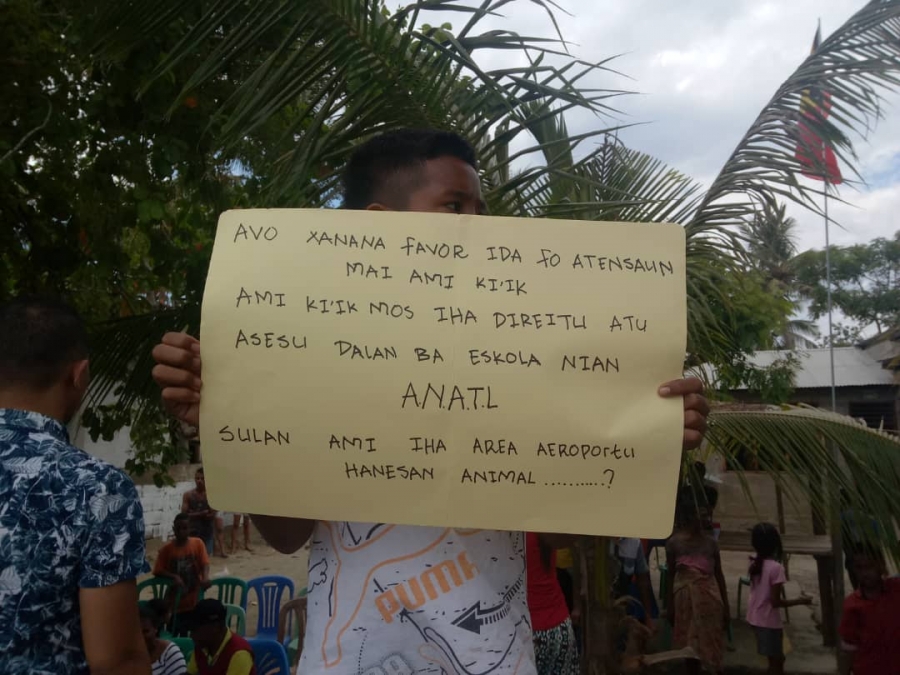 AVO XANANA FAVOR IDA FO ATENSAUN
MAI AMI KI'IK
AMI KI'IK MOS IHA DIREITU ATU
ASESU DALAN BA ESKOLA NIAN
A.N.A.T.L
SULAN AMI IHA AREA AEROPORTU
HANESAN ANIMAL ..........?
PUMA